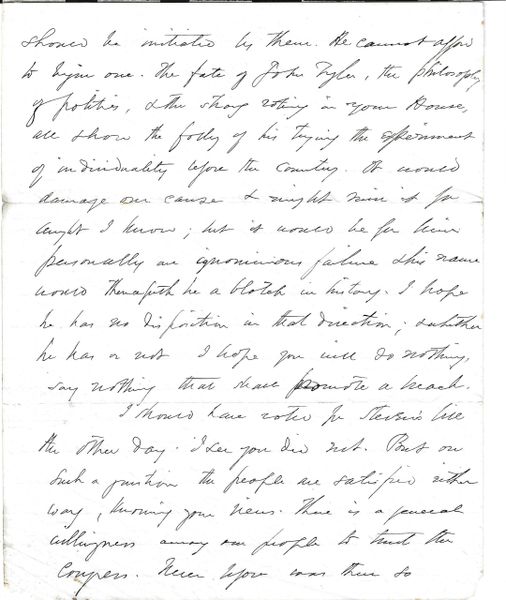 should be initiated by them. He cannot afford
to begin one. The fate of John Tyler, the philosophy
of politics, & the strong voting in your House,
all show the folly of his trying the experiment
of individuality before the country. It would
damage our cause & might ruin it for
aught I know; but it would be for him
personally an ignominious failure & his name
would thenceforth be a blotch in history. I hope
he has no disposition in that direction; & whether
he has or not I hope you will do nothing,
say nothing that shall promote a breach.
I should have voted for Stevens' bill
the other day. I see you did not. But on
such a question the people are satisfied either
way, knowing your views. There is a general
willingness among our people to trust the
Congress. Never before was there so